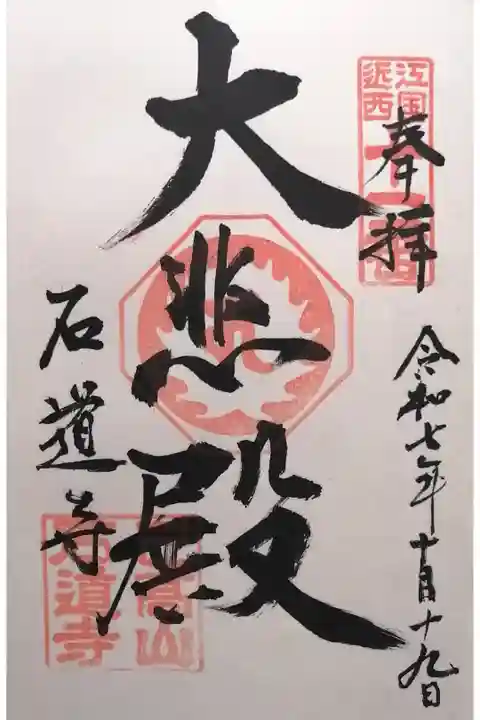 奉拝
令和七年十月十九日
大悲殿
石道寺
近江国
西
高山
石道寺